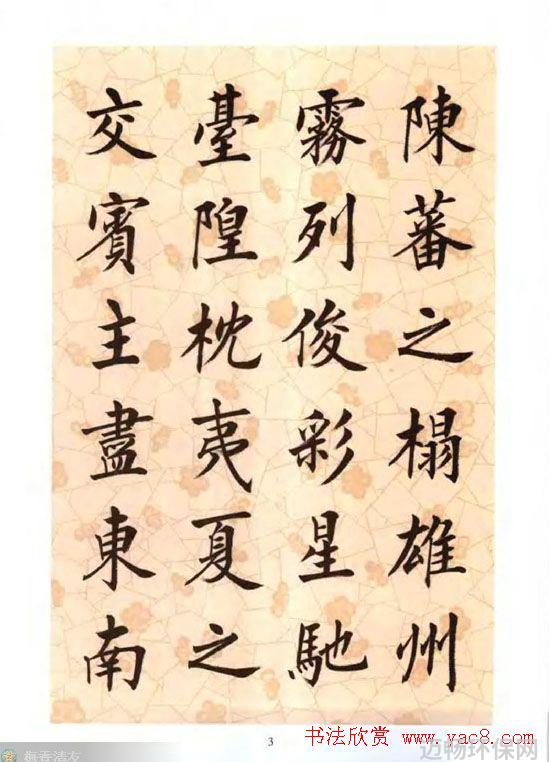 陳蕃之榻雄州
霧列俊彩星馳
臺隍枕夷夏之
交賓主盡東南
3
书法欣赏 www.yac8.com
迈畅环保网
梅香清友